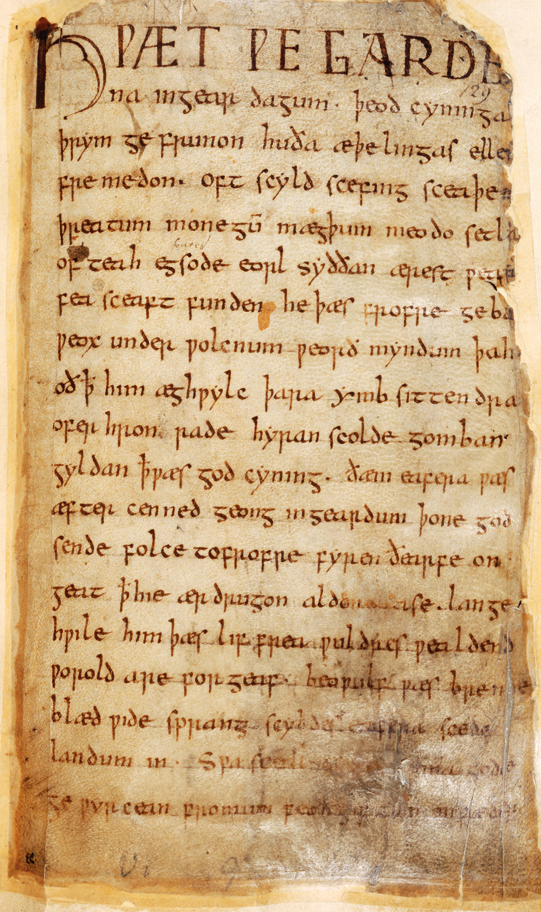 HǷÆT ǷE GARDE
129
na in gear dagum · þeod cyninga
þrym ge frunon huða æþelingas elle
fre medon · oft scyld scefing sceaþe
þreatum monegū mægþum meodo setla
of teah egsode eorl syððan ærest ƿear
fea sceaft funden he þæs frofre geba
ƿeox under ƿolcnum ƿeorð myndum þah
oð ꝥ him æghƿylc þara ymb sittendra
ofer hron rade hyran scolde gomban
gyldan ꝥ ƿæs god cyning · ðæm eafera ƿæs
æfter cenned geong in geardum þone god
sende folce to frofre fyren ðearfe on
geat ꝥ hie ær drugon aldor ase · lange
hƿile him þæs lif frea ƿuldres ƿealdend
ƿorold are for geaf · beoƿulf ƿæs breme
blæd ƿide sprang scyldes eafera scede
landum in · Sƿa sceal gode
ge ƿyrcean fromum feoh giftum